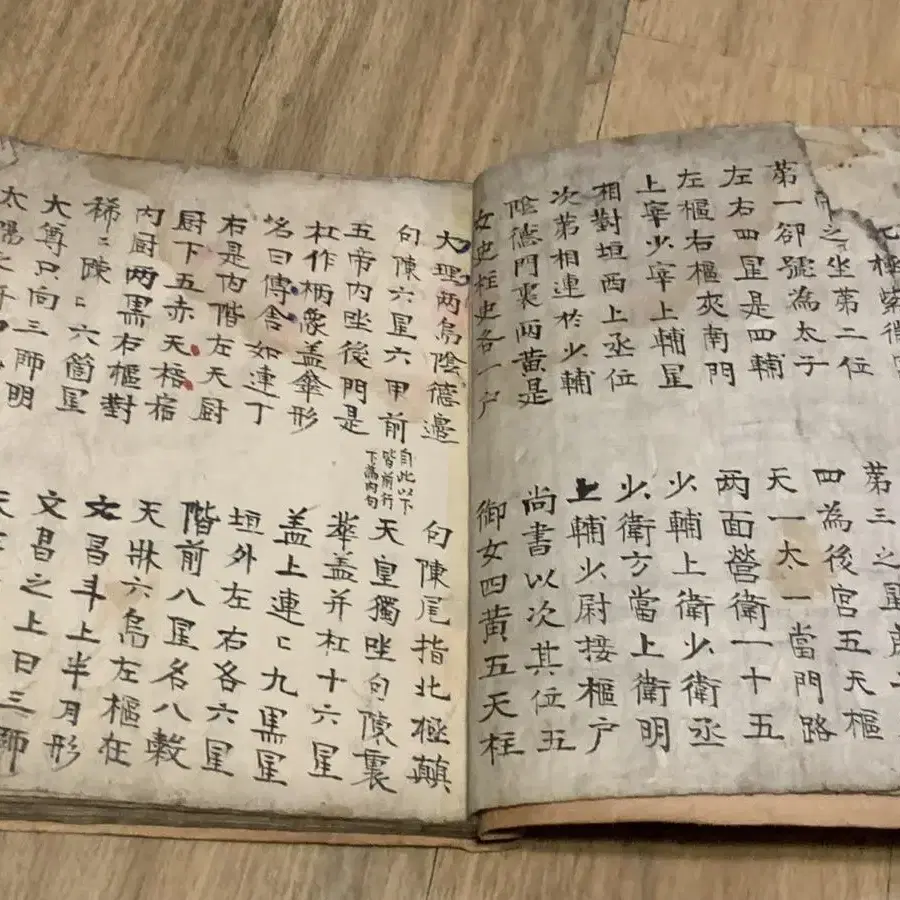 極紫微
之坐第二位
第三之星
第一卻號為太子
四為後宮五天樞
左右四星是四輔
天一太一當門路
左樞右樞夾南門
两面營衛一十五
上宰少宰上輔星
少輔上衛少衛丞
相對垣西上丞位
少衛方當上衛明
次第相連於少輔
上輔少尉接樞户
陰德門裏两黃是
尚書以次其位五
女史柱史各一户
御女四黃五天柱
大理两烏陰德邊
句陳尾指北極顛
句陳六星六甲前
自此以下
皆前行
下為內句
天皇獨坐句陳裏
五帝內坐後門是
華盖并杠十六星
杠作柄象盖傘形
盖上連〻九黑星
名曰傳舍如連丁
垣外左右各六星
右是內階左天厨
階前八星名八穀
厨下五赤天棓宿
天牀六烏左樞在
內厨两黑右樞對
文昌斗上半月形
稀〻踈〻六箇星
文昌之上曰三師
大尊只向三師明
太陽之